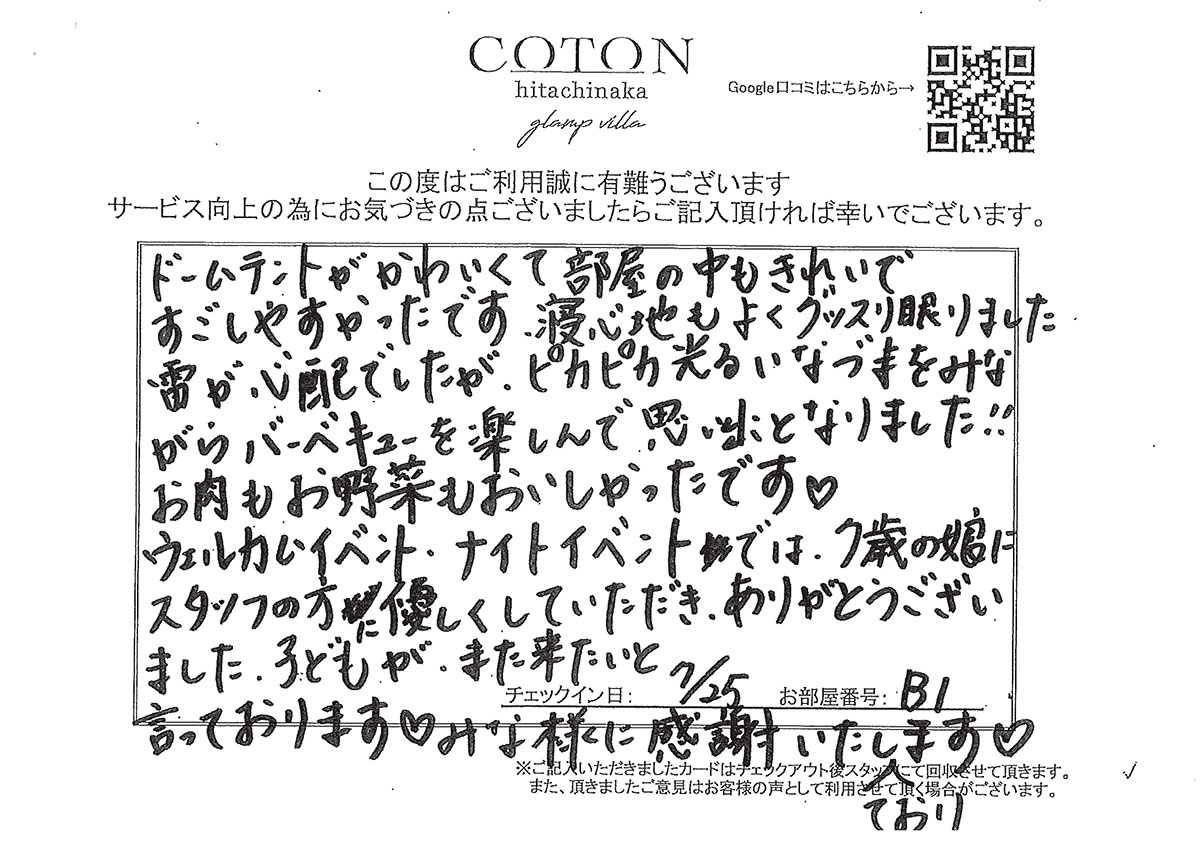 COTON
hitachinaka
glamp villa
Google口コミはこちらから→
この度はご利用誠に有難うございます
サービス向上の為にお気づきの点ございましたらご記入頂ければ幸いでございます。
ドームテントがかわいくて部屋の中もきれいで
すごしやすかったです.寝心地もよくグッスリ眠りました
雷が心配でしたが.ピカピカ光るいなづまをみな
がらバーベキューを楽しんで思い出となりました!!
お肉もお野菜もおいしかったです♡
ウェルカムイベント.ナイトイベントでは.7歳の娘に
スタッフの方に優しくしていただき.ありがとうござい
ました.子どもが.また来たいと
チェックイン日: 7/25 お部屋番号: B1
言っております♡みな様に感謝いたします♡
ており
※ご記入いただきましたカードはチェックアウト後スタッフにて回収させて頂きます。
また、頂きましたご意見はお客様の声として利用させて頂く場合がございます。